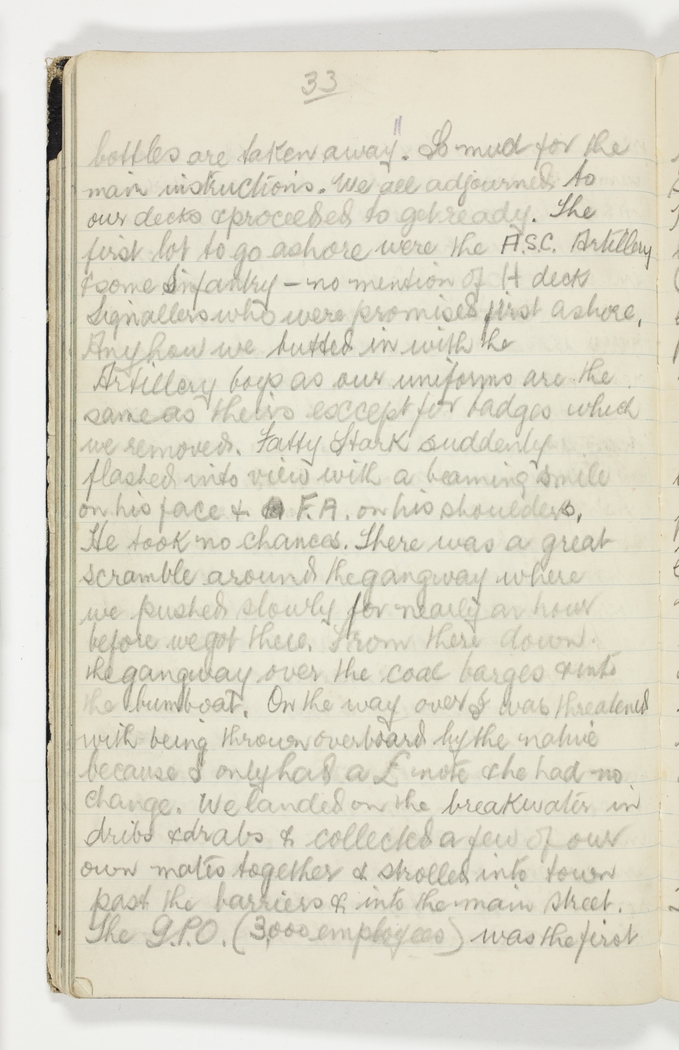 33
bottles are taken away". So mud for the
main instructions. We all adjourned to
our decks & proceeded to get ready. The
first lot to go ashore were the A.S.C. Artillery
& some Infantry – no mention of H deck
Signallers who were promised first ashore.
Anyhow we butted in with the
Artillery boys as our uniforms are the
same as theirs except for badges which
we removed. Fatty Stark suddenly
flashed into view with a beaming smile
on his face & F.A. on his shoulders.
He took no chances. There was a great
scramble around the gangway where
we pushed slowly for nearly an hour
before we got there. From there down
the gangway over the coal barges & into
the bumboat. On the way over I was threatened
with being thrown overboard by the native
because I only had a £ note & he had no
change. We landed on the breakwater in
dribs & drabs & collected a few of our
own mates together & strolled into town
past the barriers & into the main street.
The G.P.O. (3,000 employees) was the first